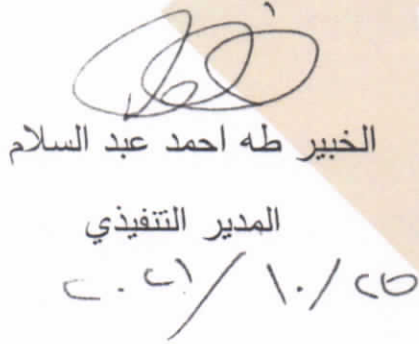 الخبير طه احمد عبد السلام
المدير التنفيذي
٢٠٢١/١٠/٢٥